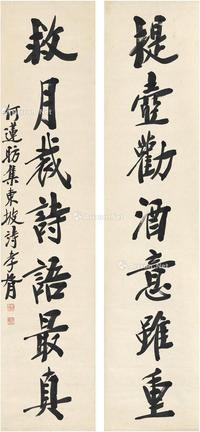 提壺勸酒意雖重
救月裁詩語最真
何蓮舫集東坡詩孝胥